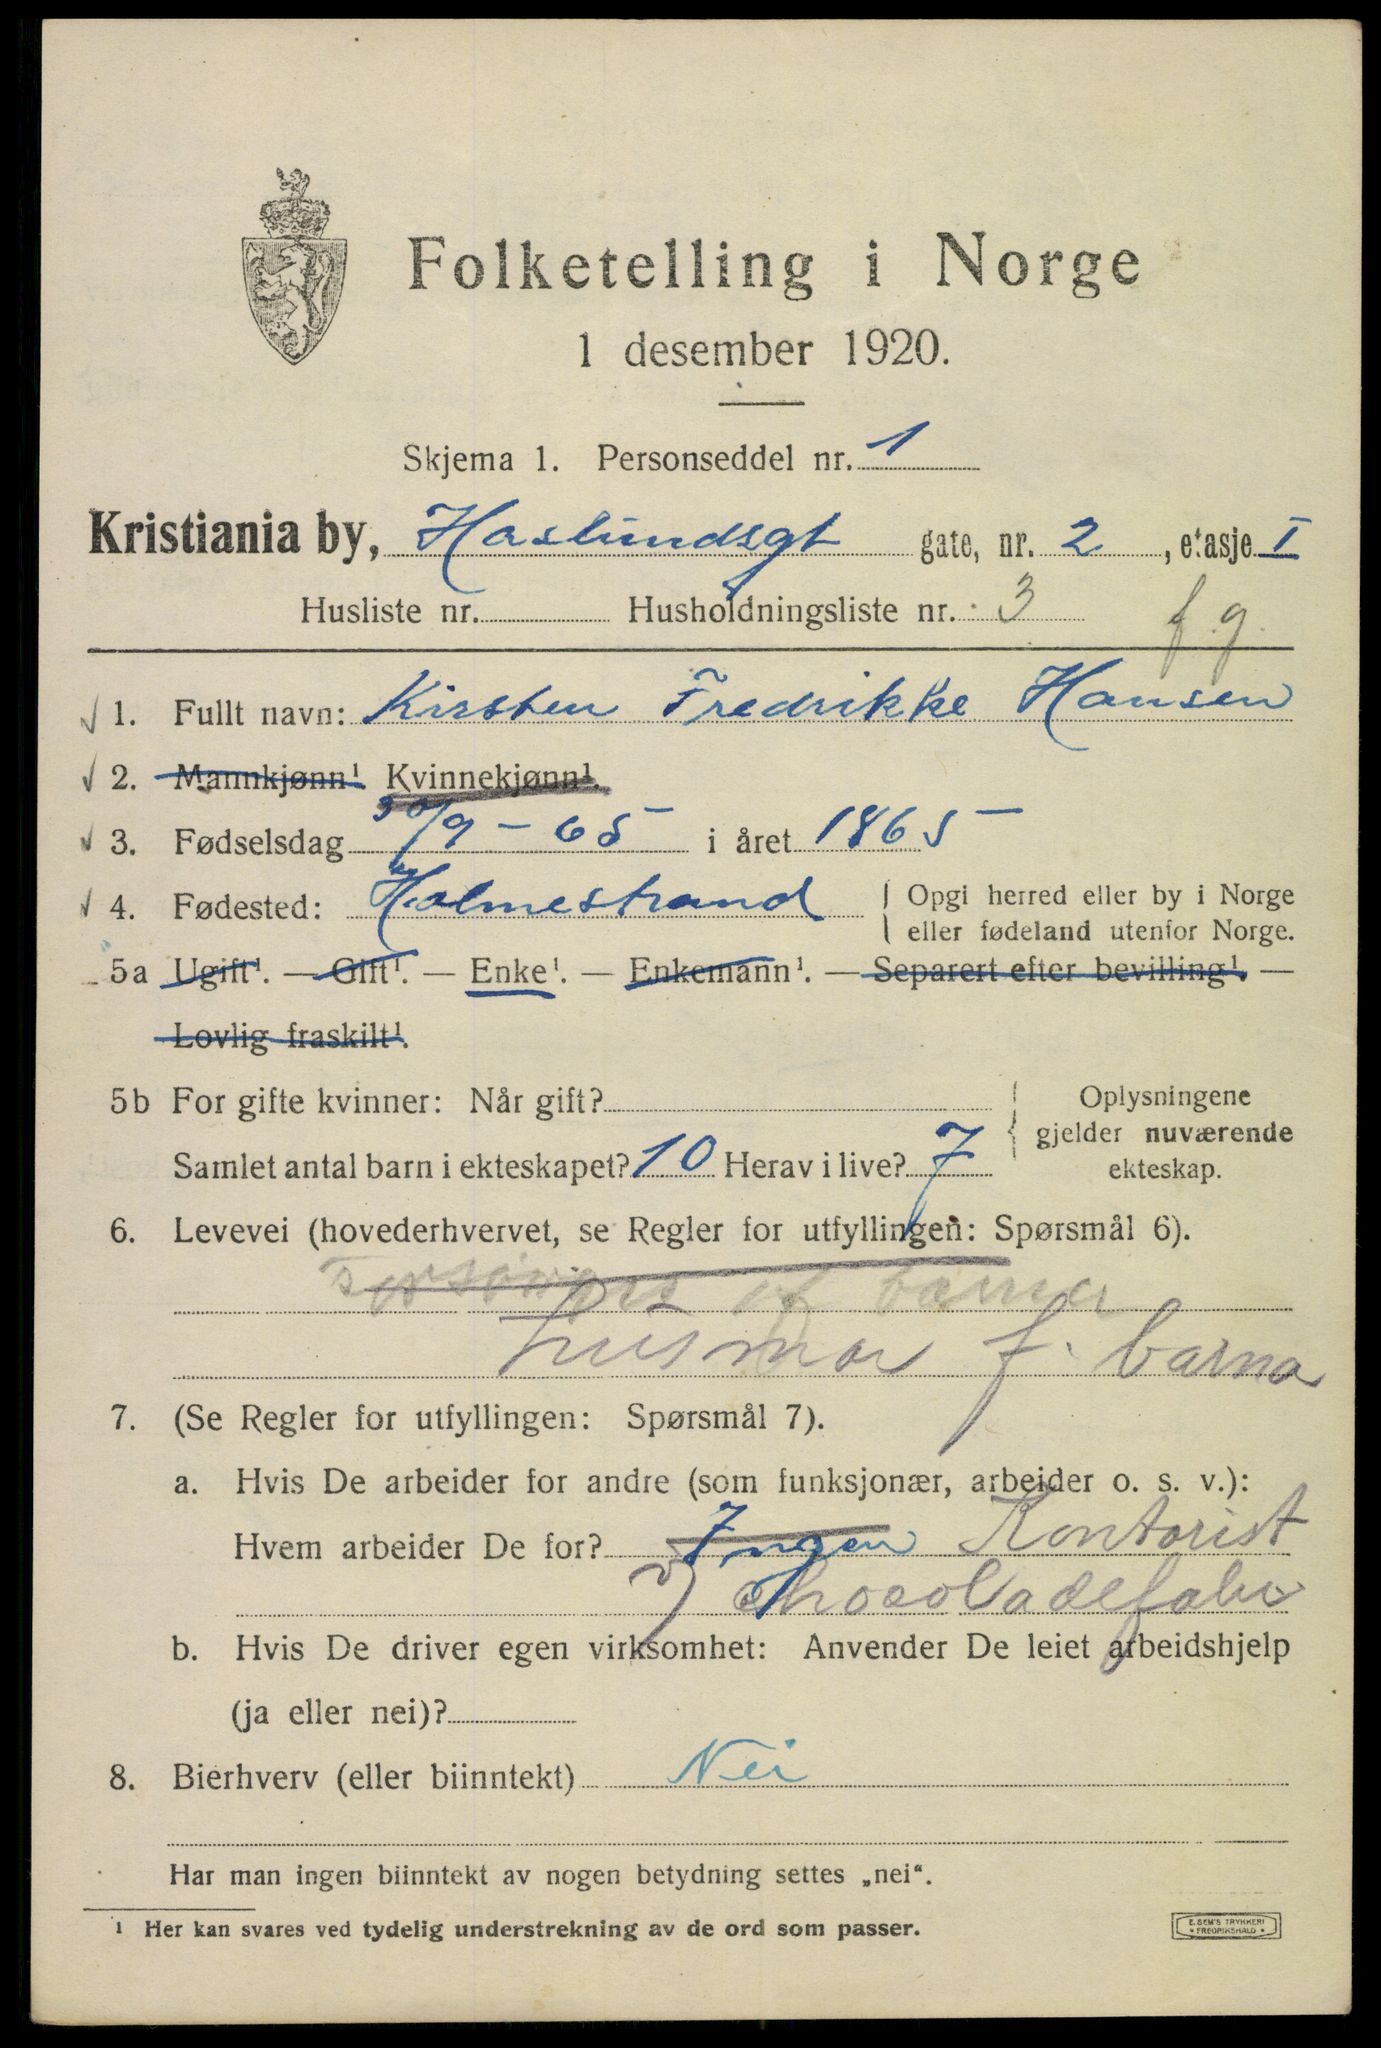 Folketelling i Norge
1 desember 1920.
Skjema 1. Personseddel nr. 1
Kristiania by, Haslundsgt gate, nr. 2, etasje I
Husliste nr. Husholdningsliste nr. 3 f.g.
1. Fullt navn: Kirsten Fredrikke Hansen
2. Mannkjønn¹. Kvinnekjønn¹.
3. Fødselsdag 30/9-65 i året 1865
4. Fødested: Holmestrand { Opgi herred eller by i Norge
eller fødeland utenfor Norge.
5a Ugift¹. — Gift¹. — Enke¹. — Enkemann¹. — Separert efter bevilling¹. —
Lovlig fraskilt¹.
5b For gifte kvinner: Når gift? Oplysningene
gjelder nuværende
Samlet antal barn i ekteskapet? 10 Herav i live? 7
ekteskap.
6. Levevei (hovederhvervet, se Regler for utfyllingen: Spørsmål 6).
Forsørges af barna
husmor f. barna
7. (Se Regler for utfyllingen: Spørsmål 7).
a. Hvis De arbeider for andre (som funksjonær, arbeider o. s. v.):
Hvem arbeider De for? Ingen Kontorist
v) Chocoladefabr
b. Hvis De driver egen virksomhet: Anvender De leiet arbeidshjelp
(ja eller nei)?
8. Bierhverv (eller biinntekt) Nei
Har man ingen biinntekt av nogen betydning settes „nei“.
¹ Her kan svares ved tydelig understrekning av de ord som passer.
E. SEM'S TRYKKERI
* FREDRIKSHALD *